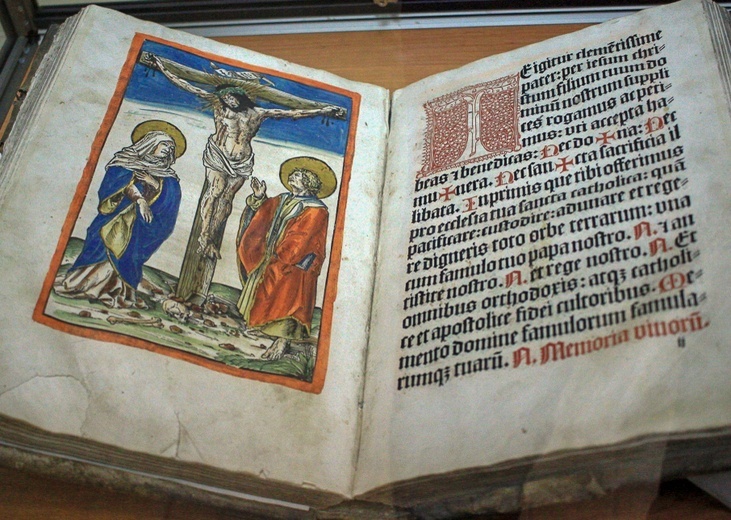 TEigitur clemētissime
pater: per iesum chri=
stum filium tuum do
minū nostrum suppli
ces rogamus ac peti=
mus: vti accepta ha=
beas ⁊ benedicas: Hec do✠na: Hec
mu✠nera. Hec san✠cta sacrificia il
libata. Inprimis que tibi offerimus
pro ecclesia tua sancta catholica: quā
pacificare: custodire: adunare et rege=
re digneris toto orbe terrarum: vna
cum famulo tuo papa nostro. N. ⁊ an
tistite nostro. N. et rege nostro. N. Et
omnibus orthodoxis: atqꝫ catholi=
ce et apostolice fidei cultoribus. Me=
mento domine famulorum famula=
rumqꝫ tuarū. N. Memoria viuorū.